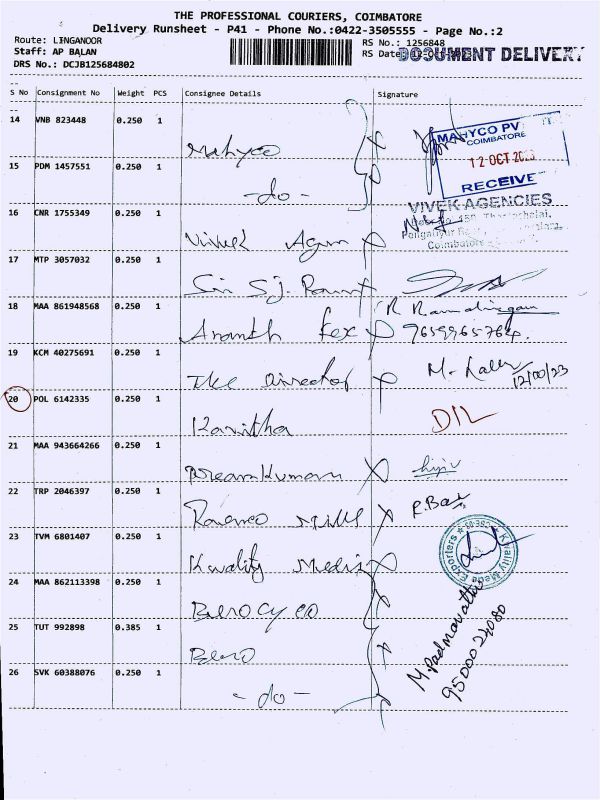 THE PROFESSIONAL COURIERS, COIMBATORE
Delivery Runsheet - P41 - Phone No.:0422-3505555 - Page No.:2
Route: LINGANOOR
RS No.: 1256848
Staff: AP BALAN
RS Date: 12-Oct-2023
DOCUMENT DELIVERY
DRS No.: DCJB125684802
S No Consignment No Weight PCS Consignee Details Signature
14 VNB 823448 0.250 1 Mahyco
MAHYCO PV
COIMBATORE
12 OCT
RECEIVE
15 PDM 1457551 0.250 1 -do-
16 CNR 1755349 0.250 1 Vivek Agen
VIVEK AGENCIES
Coimbatore
17 MTP 3057032 0.250 1
18 MAA 861948568 0.250 1
R Ramalingam
19 KCM 40275691 0.250 1 The Director
20 POL 6142335 0.250 1 Kavitha
21 MAA 943664266 0.250 1 Premkumar
22 TRP 2046397 0.250 1 Mill
23 TVM 6801407 0.250 1 Kwality Medis
Kwality Meds Exporters
24 MAA 862113398 0.250 1
25 TUT 992898 0.385 1
26 SVK 60388076 0.250 1 -do-
M. Padmavathi
9500024080